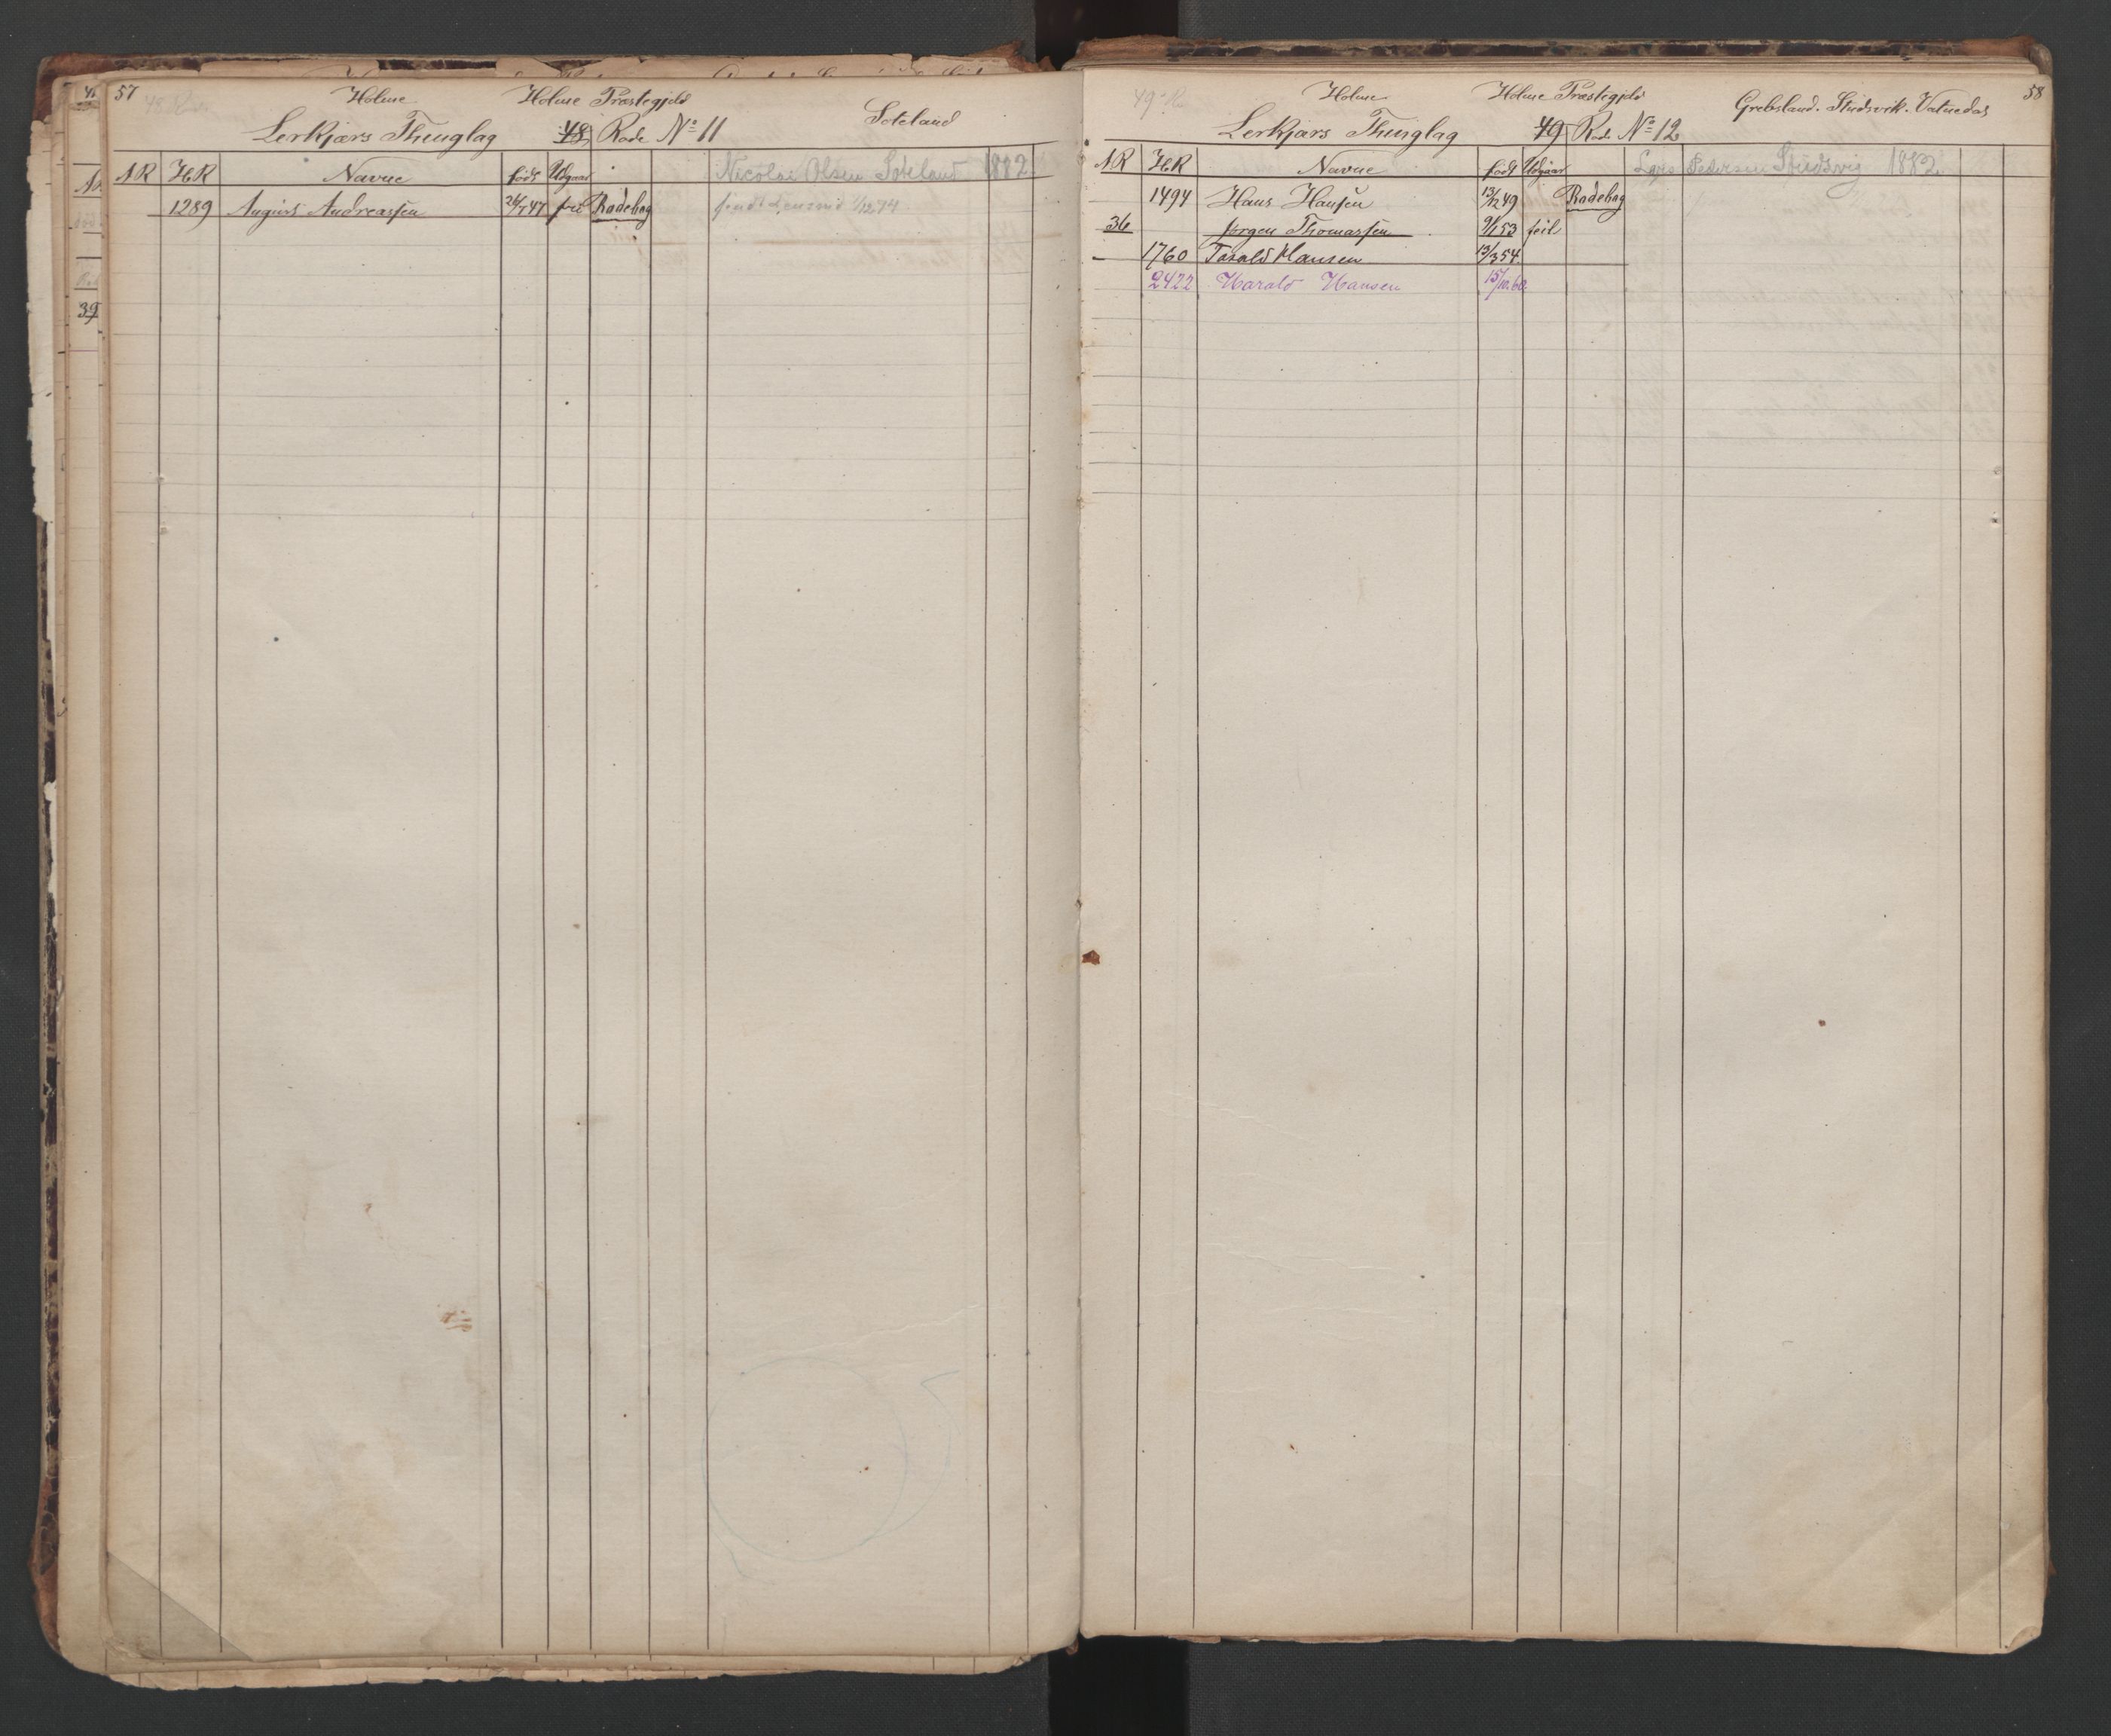 57 Holme Holme Præstegjeld Soteland
Lerkjærs Thinglag 48 Rode No 11
NR HR Navne født Udgaar Nicolai Olsen Soteland 1882
1289 August Andreassen 26/7 47 fri Rodebog
39
58 Holme Holme Præstegjeld Grebsland. Studsvik. Vatnedal
Lerkjærs Thinglag 49 Rode No 12
NR HR Navne født Udgaar Lars Pedersen Studsvig 1882
1494 Hans Hansen 13/12 49 Rodebog
36 Jørgen Thomassen 9/1 53 feil
1760 Tarald Hansen 13/3 54
2422 Harald Hansen 15/10 60